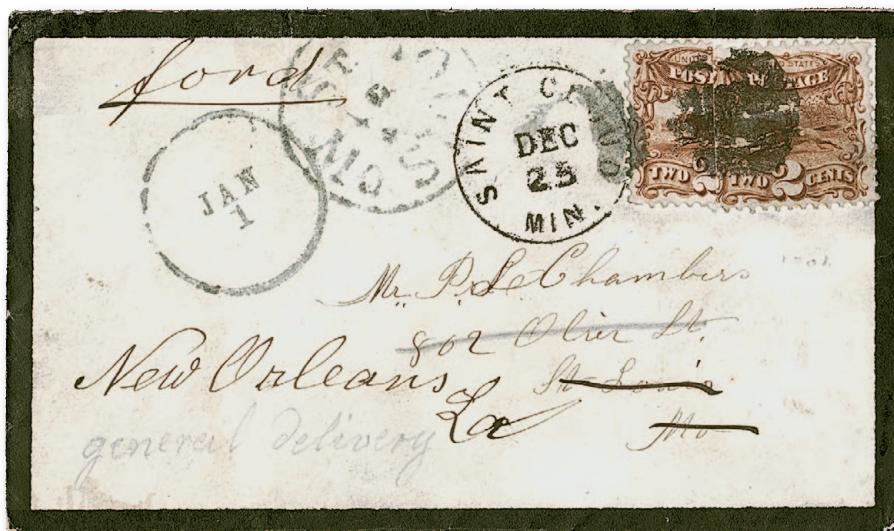 ford
JAN
1
SAINT CLOUD
DEC
25
MIN.
POSTAGE
TWO 2 TWO 2 CENTS
Mr. P. L. Chambers
802 Olive St.
New Orleans St Louis
La Mo
general delivery